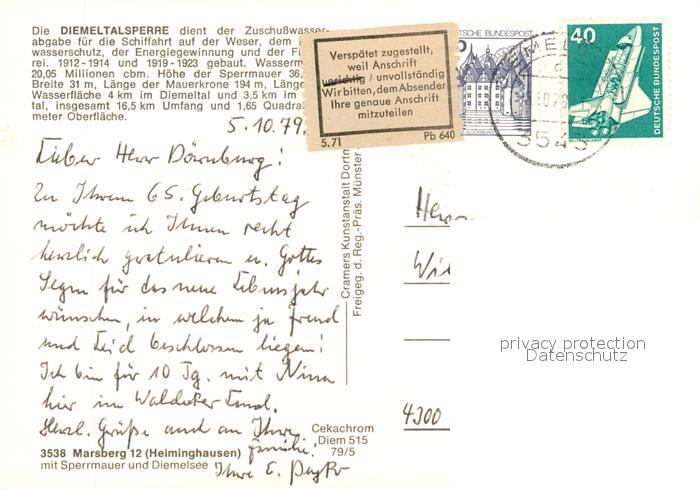 Die DIEMELTALSPERRE dient der Zuschußwasser-
abgabe für die Schiffahrt auf der Weser, dem
wasserschutz, der Energiegewinnung und der Fi
rei. 1912-1914 und 1919-1923 gebaut. Wasserm
20,05 Millionen cbm. Höhe der Sperrmauer 36,
Breite 31 m, Länge der Mauerkrone 194 m, Länge
Wasserfläche 4 km im Diemeltal und 3,5 km im
tal, insgesamt 16,5 km Umfang und 1,65 Quadra
meter Oberfläche.
Verspätet zugestellt,
weil Anschrift
unrichtig / unvollständig
Wir bitten, dem Absender
Ihre genaue Anschrift
mitzuteilen
5.71 Pb 640
DEUTSCHE BUNDESPOST
40
DEUTSCHE BUNDESPOST
3543
5.10.79.
Lieber Herr Dörnburg!
Zu Ihrem 65. Geburtstag
möchte ich Ihnen recht
herzlich gratulieren u. Gottes
Segen für das neue Lebensjahr
wünschen, in welchem ja Freud
und Leid beschlossen liegen!
Ich bin für 10 Tg. mit Nina
hier im Waldecker Land.
Herzl. Grüße auch an Ihre
Familie!
Ihre E.
Cramers Kunstanstalt Dortm
Freigeg. d. Reg.-Präs. Münster
Herrn
Wil
4300
privacy protection
Datenschutz
Cekachrom
Diem 515
79/5
3538 Marsberg 12 (Heiminghausen)
mit Sperrmauer und Diemelsee